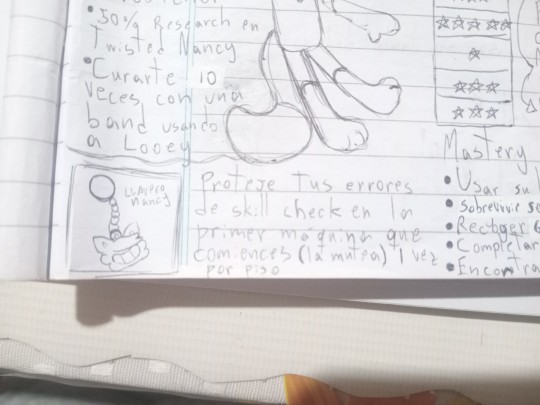 • 50% Research en
Twisted Nancy
• Curarte 10
veces con una
band usando
a Looey
LLavero
nancy
Proteje tus errores
de skill check en la
primer máquina que
comiences (la mutea) 1 vez
por piso
Mastery
• Usar su
• sobrevivir
• Recoger
• Completar
• Encontra